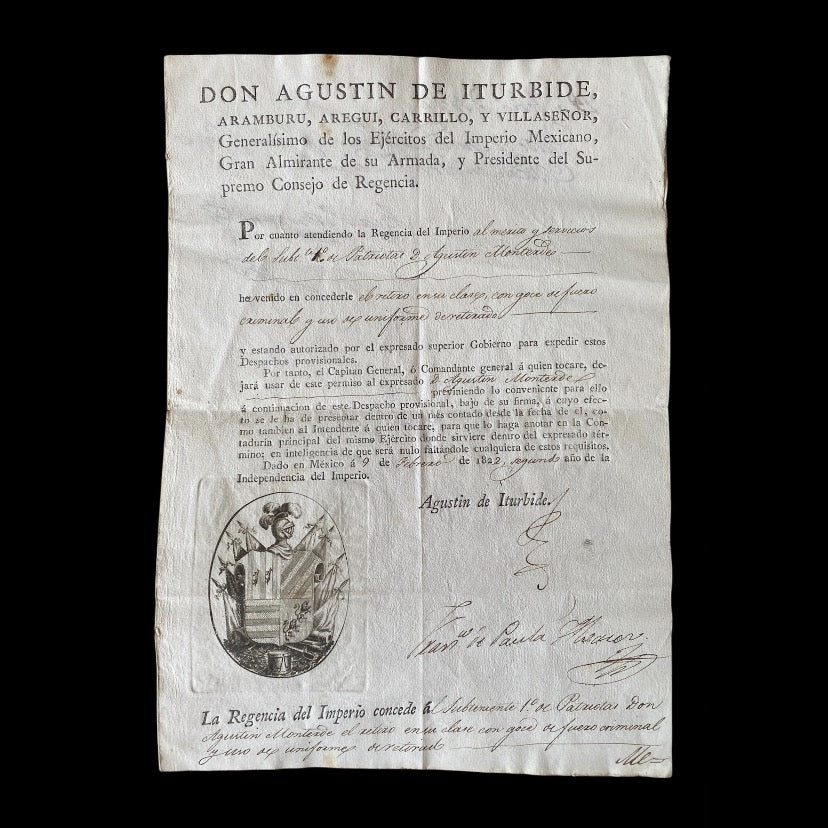 DON AGUSTIN DE ITURBIDE,
ARAMBURU, AREGUI, CARRILLO, Y VILLASEÑOR,
Generalísimo de los Ejércitos del Imperio Mexicano,
Gran Almirante de su Armada, y Presidente del Su-
premo Consejo de Regencia.
Por cuanto atendiendo la Regencia del Imperio al merito y servicios
del Subte. 1.º de Patriotas D. Agustin Monterde
ha venido en concederle el retiro en su clase, con goce de fuero
criminal y uso de uniforme de retirado
y estando autorizado por el expresado superior Gobierno para expedir estos
Despachos provisionales.
Por tanto, el Capitan General, ó Comandante general á quien tocare, de-
jará usar de este permiso al expresado D. Agustin Monterde
previniendo lo conveniente para ello
á continuacion de este Despacho provisional, bajo de su firma, á cuyo efec-
to se le ha de presentar dentro de un mes contado desde la fecha de el, co-
mo tambien al Intendente á quien tocare, para que lo haga anotar en la Con-
taduría principal del mismo Ejército donde sirviere dentro del expresado tér-
mino; en inteligencia de que será nulo faltándole cualquiera de estos requisitos.
Dado en México á 9 de Febrero de 1822, segundo año de la
Independencia del Imperio.
Agustin de Iturbide.
Franco. de Paula
La Regencia del Imperio concede á l Subteniente 1.º de Patriotas Don
Agustin Monterde el retiro en su clase con goce de fuero criminal
y uso de uniforme de retirado